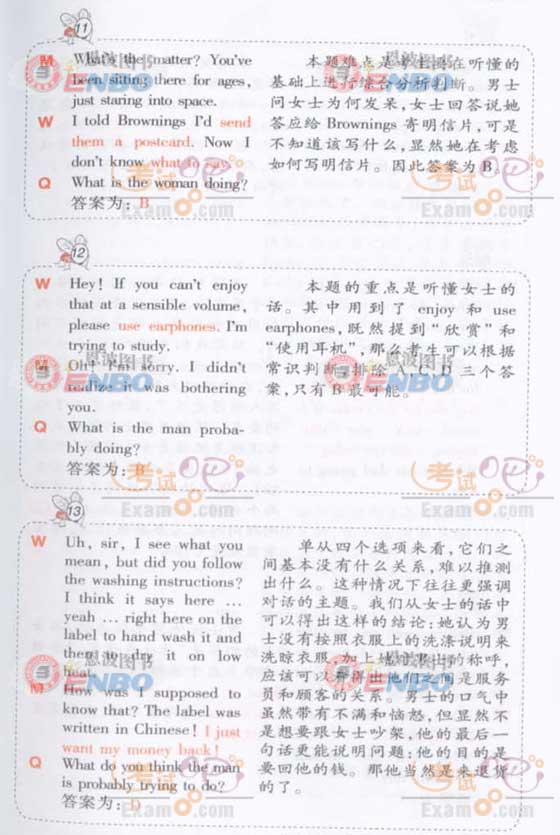 11
M What's the matter? You've
been sitting there for ages,
just staring into space.
W I told Brownings I'd send
them a postcard. Now I
don't know what to say.
Q What is the woman doing?
答案为：B
本题难点是考生需在听懂的
基础上进行综合分析判断。男士
问女士为何发呆，女士回答说她
答应给 Brownings 寄明信片，可是
不知道该写什么，显然她在考虑
如何写明信片。因此答案为 B。
12
W Hey! If you can't enjoy
that at a sensible volume,
please use earphones. I'm
trying to study.
M Oh! I'm sorry. I didn't
realize it was bothering
you.
Q What is the man proba-
bly doing?
答案为：B
本题的重点是听懂女士的
话。其中用到了 enjoy 和 use
earphones，既然提到“欣赏”和
“使用耳机”，那么考生可以根据
常识判断，排除 A、C、D 三个答
案，只有 B 最可能。
13
W Uh, sir, I see what you
mean, but did you follow
the washing instructions?
I think it says here ...
yeah ... right here on the
label to hand wash it and
then to dry it on low
heat.
M How was I supposed to
know that? The label was
written in Chinese! I just
want my money back!
Q What do you think the man
is probably trying to do?
答案为：D
单从四个选项来看，它们之
间基本没有什么关系，难以推测
出什么。这种情况下往往更强调
对话的主题。我们从女士的话中
可以得出这样的结论：她认为男
士没有按照衣服上的洗涤说明来
洗晾衣服，加上她对男士的称呼，
应该可以猜得出他们之间是服务
员和顾客的关系。男士的口气中
虽然带有不满和恼怒，但显然不
是想要跟女士吵架，他的最后一
句话更能说明问题：他的目的是
要回他的钱。那他当然是来退货
的了。
恩波图书
ENBO
考试吧
Exam8.com